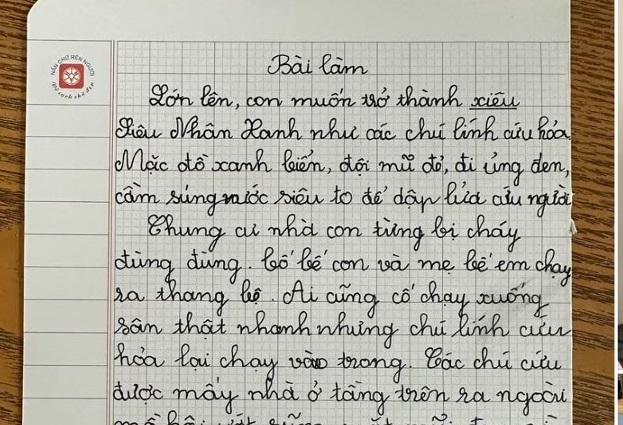 NẮN CHỮ RÈN NGƯỜI
Bài làm
Lớn lên, con muốn trở thành xiêu
Siêu Nhân Xanh như các chú lính cứu hỏa
Mặc đồ xanh biển, đội mũ đỏ, đi ủng đen,
cầm súng nước siêu to để dập lửa cứu người
Chung cư nhà con từng bị cháy
đùng đùng. Bố bế con và mẹ bế em chạy
ra thang bộ. Ai cũng cố chạy xuống
sân thật nhanh nhưng chú lính cứu
hỏa lại chạy vào trong. Các chú cứu
được mấy nhà ở tầng trên ra ngoài